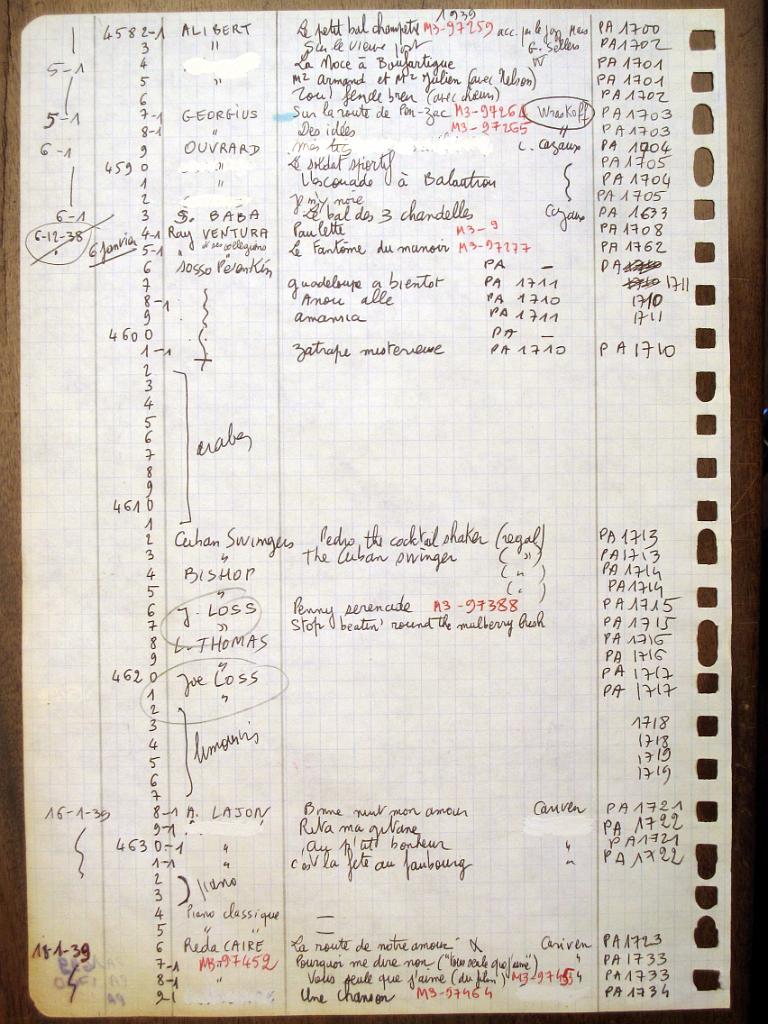 1939
4582-1 ALIBERT Le petit bal champêtre M3-97259 acc. par le jazz PA 1700
3 " Sur le vieux port G. Sellers PA 1702
5-1 4 La Noce à Boufartigue W PA 1701
5 Mr Armand et Mr Julien (avec Nelson) PA 1701
6 Zou! fende bren (avec chœurs) PA 1702
5-1 7-1 GEORGIUS Sur la route de Pen-zac M3-97264 Wraskoff PA 1703
8-1 " Des idées M3-97265 " PA 1703
6-1 9 OUVRARD mes tics L. Cazaux PA 1704
459 0 Le soldat sportif PA 1705
1 L'escouade à Balautrou PA 1704
2 Je m'y noie PA 1705
6-1 3 S. BABA Le bal des 3 chandelles Cazaux PA 1633
6-12-38 4-1 Ray VENTURA Paulette M3-9 PA 1708
6 janvier 5-1 " et ses collégiens Le Fantôme du manoir M3-97277 PA 1762
6 Sosso Pé-en-Kin PA — PA
7 guadeloupe a bientot PA 1711 1711
8-1 Anou allé PA 1710 1710
9 amansia PA 1711 1711
460 0 PA —
1-1 zatrape misterieuse PA 1710 PA 1710
2
3
4
5
6 arabes
7
8
9
461 0
1
2 Cuban Swingers Pedro, the cocktail shaker (regal) PA 1713
3 " The Cuban swinger ( " ) PA 1713
4 BISHOP ( " ) PA 1714
5 " ( " ) PA 1714
6 J. LOSS Penny serenade M3-97388 PA 1715
7 " Stop beatin' round the mulberry bush PA 1715
8 L. THOMAS PA 1716
9 " PA 1716
462 0 Joe LOSS PA 1717
1 " PA 1717
2
3 1718
4 limousins 1718
5 1719
6 1719
7
16-1-39 8-1 A. LAJON Bonne nuit mon amour Cariven PA 1721
9-1 Rita ma gitane PA 1722
463 0-1 " Au p'tit bonheur " PA 1721
1-1 " c'est la fête au faubourg " PA 1722
2 piano
3
4 Piano classique —
5 " " —
18-1-39 6 Reda CAIRE La route de notre amour X Cariven PA 1723
7-1 M3-97452 Pourquoi me dire non ("vous seule que j'aime") " PA 1733
8-1 " Vous seule que j'aime (du film) M3-97454 PA 1733
9-1 Une chanson M3-97464 PA 1734